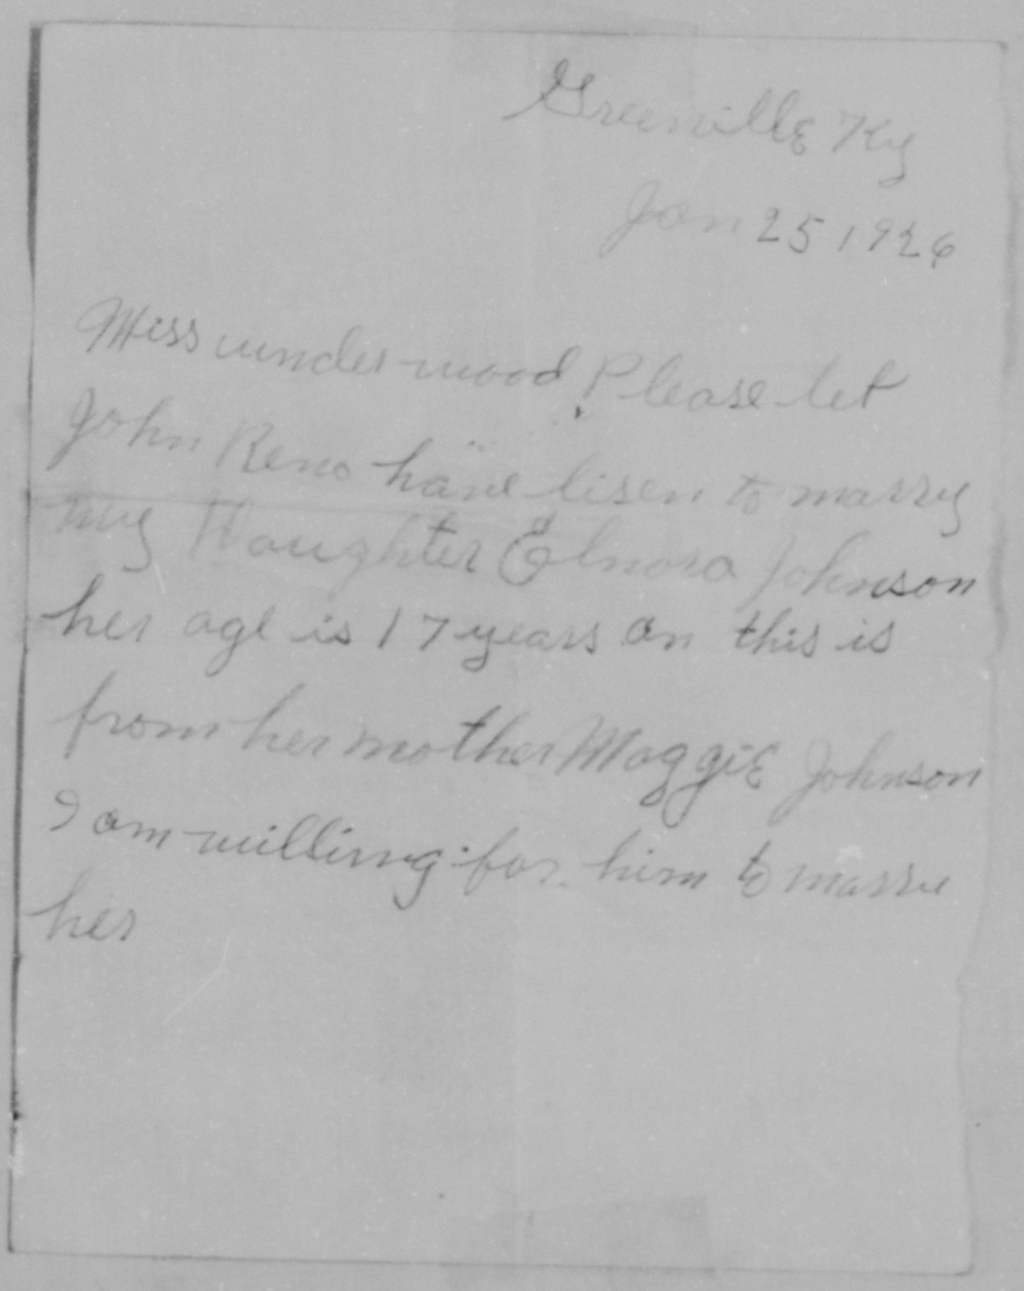 Greenville Ky
Jan 25 1926
Miss under wood. Please let
John Reno have lisen to marry
my Daughter Elnora Johnson
her age is 17 years an this is
from her mother Maggie Johnson
I am willing for him to marrie
her